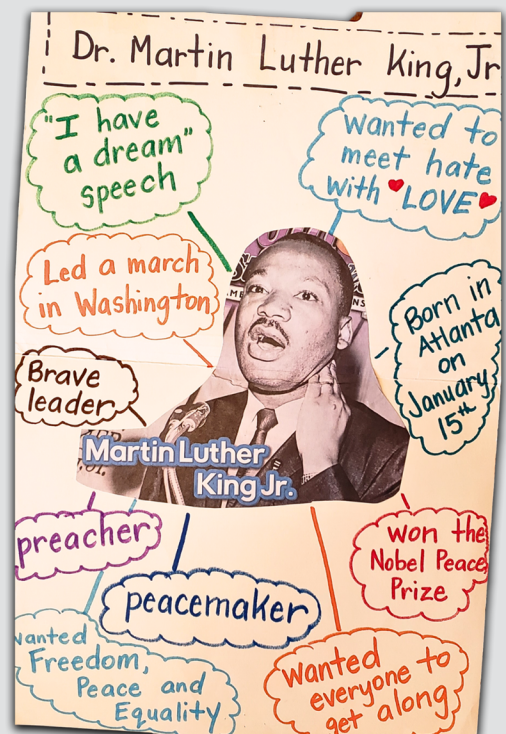 Dr. Martin Luther King, Jr
"I have
a dream"
speech
wanted to
meet hate
with "LOVE"
Led a march
in Washington
Born in
Atlanta
on
January
15th
Brave
leader
Martin Luther
King Jr.
preacher
peacemaker
won the
Nobel Peace
Prize
wanted
Freedom,
Peace and
Equality
wanted
everyone to
get along